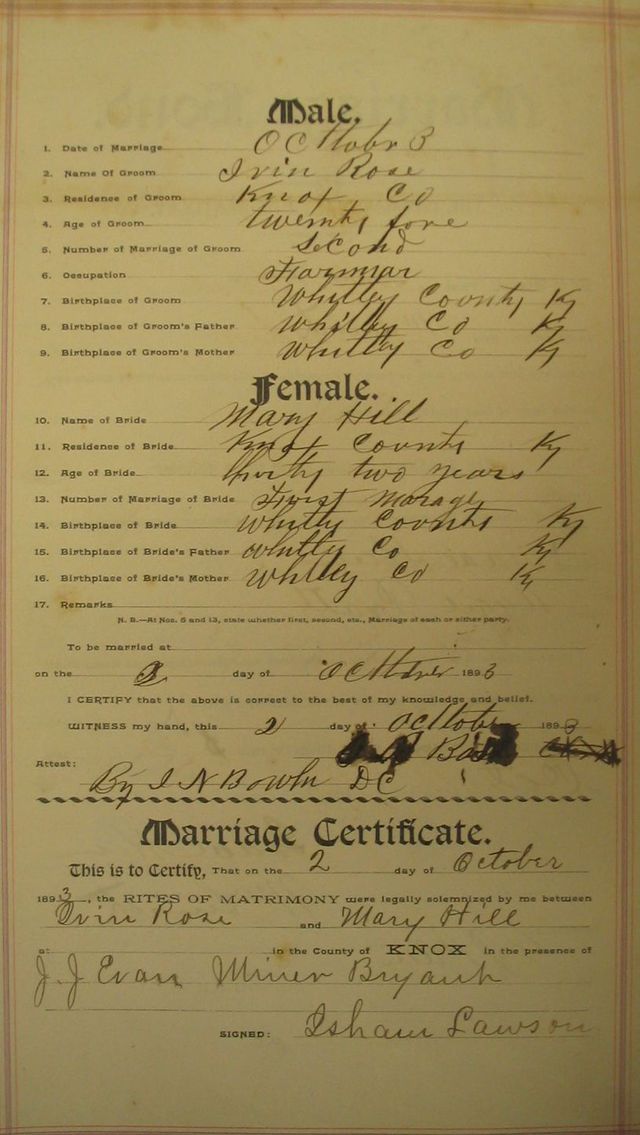 Male.
1. Date of Marriage Octtobr 3
2. Name Of Groom Irvin Rose
3. Residence of Groom Knox Co
4. Age of Groom twemty fore
5. Number of Marriage of Groom Second
6. Occupation Farmmar
7. Birthplace of Groom Whitley County Ky
8. Birthplace of Groom's Father Whitley Co Ky
9. Birthplace of Groom's Mother Whitley Co Ky
Female.
10. Name of Bride Mary Hill
11. Residence of Bride Knox County Ky
12. Age of Bride thirty two years
13. Number of Marriage of Bride First Marage
14. Birthplace of Bride Whitly County Ky
15. Birthplace of Bride's Father Whitly Co Ky
16. Birthplace of Bride's Mother Whitley Co Ky
17. Remarks
N. B.—At Nos. 5 and 13, state whether first, second, etc., Marriage of each or either party.
To be married at
on the 2 day of 1893
I CERTIFY that the above is correct to the best of my knowledge and belief.
WITNESS my hand, this 2 day of Octtober 1893
Attest:
By I N Bowlin DC
Marriage Certificate.
This is to Certify, That on the 2 day of October
1893, the RITES OF MATRIMONY were legally solemnized by me between
Irvin Rose and Mary Hill
at in the County of KNOX in the presence of
J. J Evan Miner Bryant
SIGNED: Isham Lawson